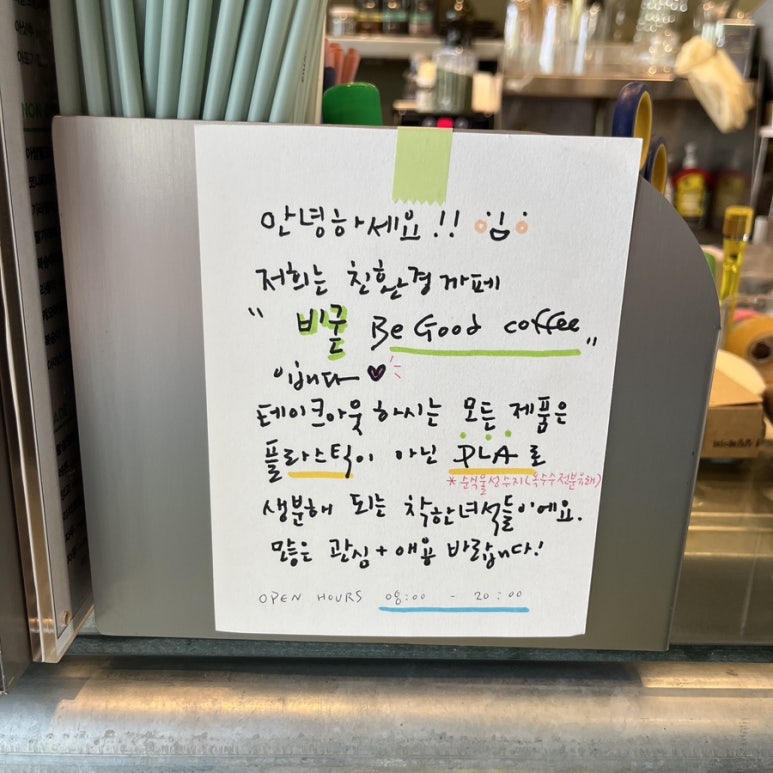 안녕하세요!!
저희는 친환경 까페
" 비굳 Be Good coffee "
입니다 ♥
테이크아웃 하시는 모든 제품은
플라스틱이 아닌 PLA로
*순식물성수지(옥수수전분유래)
생분해 되는 착한녀석들이에요.
많은 관심 + 애용 바랍니다!
OPEN HOURS 08:00 - 20:00